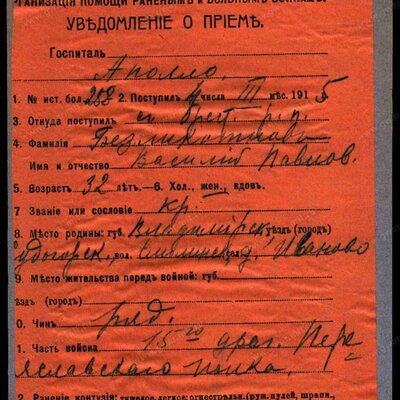 ГАНИЗАЦІЯ ПОМОЩИ РАНЕНЫМЪ И БОЛЬНЫМЪ ВОИНАМЪ.
УВѢДОМЛЕНІЕ О ПРІЕМѢ.
Госпиталь
Аполло.
1. № ист. бол. 288 2. Поступилъ 4 числа III мѣс. 1915
3. Откуда поступилъ
4. Фамилія
Имя и отчество Василій Павлов.
5. Возрастъ 32 лѣтъ.—6. Хол., жен., вдовъ.
7 Званіе или сословіе кр.
8. Мѣсто родины: губ. Владимірск уѣздъ (городъ)
удогорск, вол. сел. Иваново
9. Мѣсто жительства передъ войной: губ.
ѣздъ (городъ)
0. Чинъ ряд.
1. Часть войска 15го драг. Пере-
яславскаго полка.
2. Раненіе контузія: тяжелое, легкое; огнестрѣльн. (руж. пулей, шрапн.,